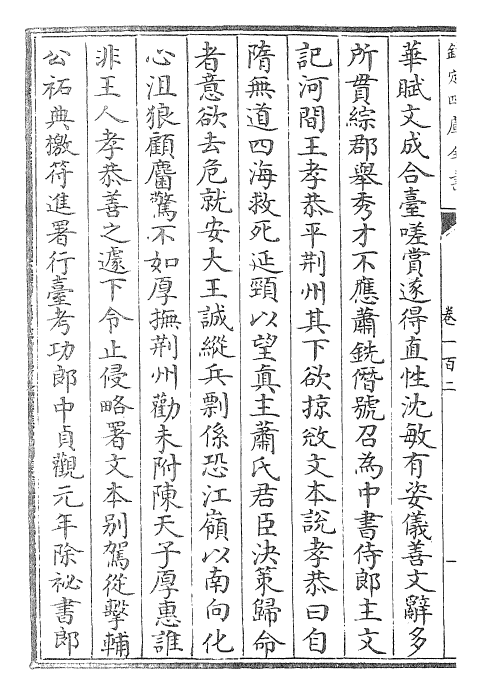 欽定四庫全書
卷一百二
一
華賦文成合臺嗟賞遂得直性沈敏有姿儀善文辭多
所貫綜郡舉秀才不應蕭銑僭號召為中書侍郎主文
記河間王孝恭平荆州其下欲掠㪇文本說孝恭曰自
隋無道四海救死延頸以望真主蕭氏君臣決策歸命
者意欲去危就安大王誠縱兵剽係恐江嶺以南向化
心沮狼顧麕驚不如厚撫荆州勸未附陳天子厚惠誰
非王人孝恭善之遽下令止侵略署文本别駕從擊輔
公祏典檄符進署行臺考功郎中貞觀元年除祕書郎